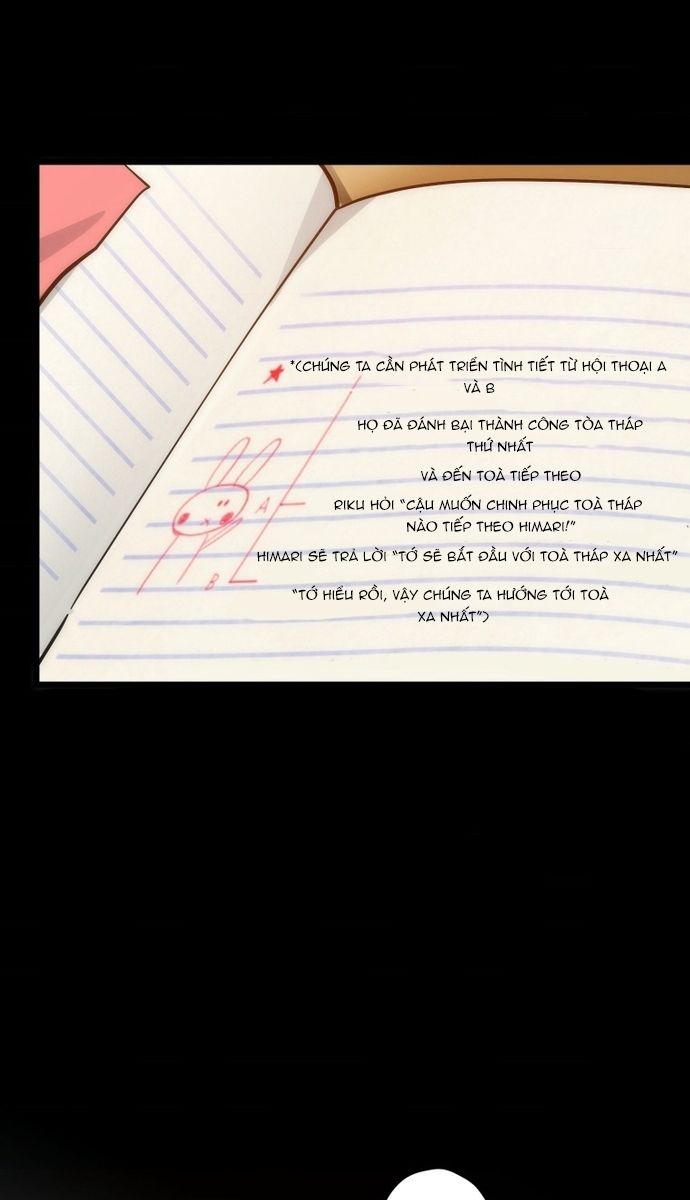 *(CHÚNG TA CẦN PHÁT TRIỂN TÌNH TIẾT TỪ HỘI THOẠI A
VÀ B
HỌ ĐÃ ĐÁNH BẠI THÀNH CÔNG TÒA THÁP
THỨ NHẤT
VÀ ĐẾN TOÀ TIẾP THEO
A
RIKU HỎI "CẬU MUỐN CHINH PHỤC TOÀ THÁP
NÀO TIẾP THEO HIMARI!"
HIMARI SẼ TRẢ LỜI "TỚ SẼ BẮT ĐẦU VỚI TOÀ THÁP XA NHẤT"
B
"TỚ HIỂU RỒI, VẬY CHÚNG TA HƯỚNG TỚI TOÀ
XA NHẤT")